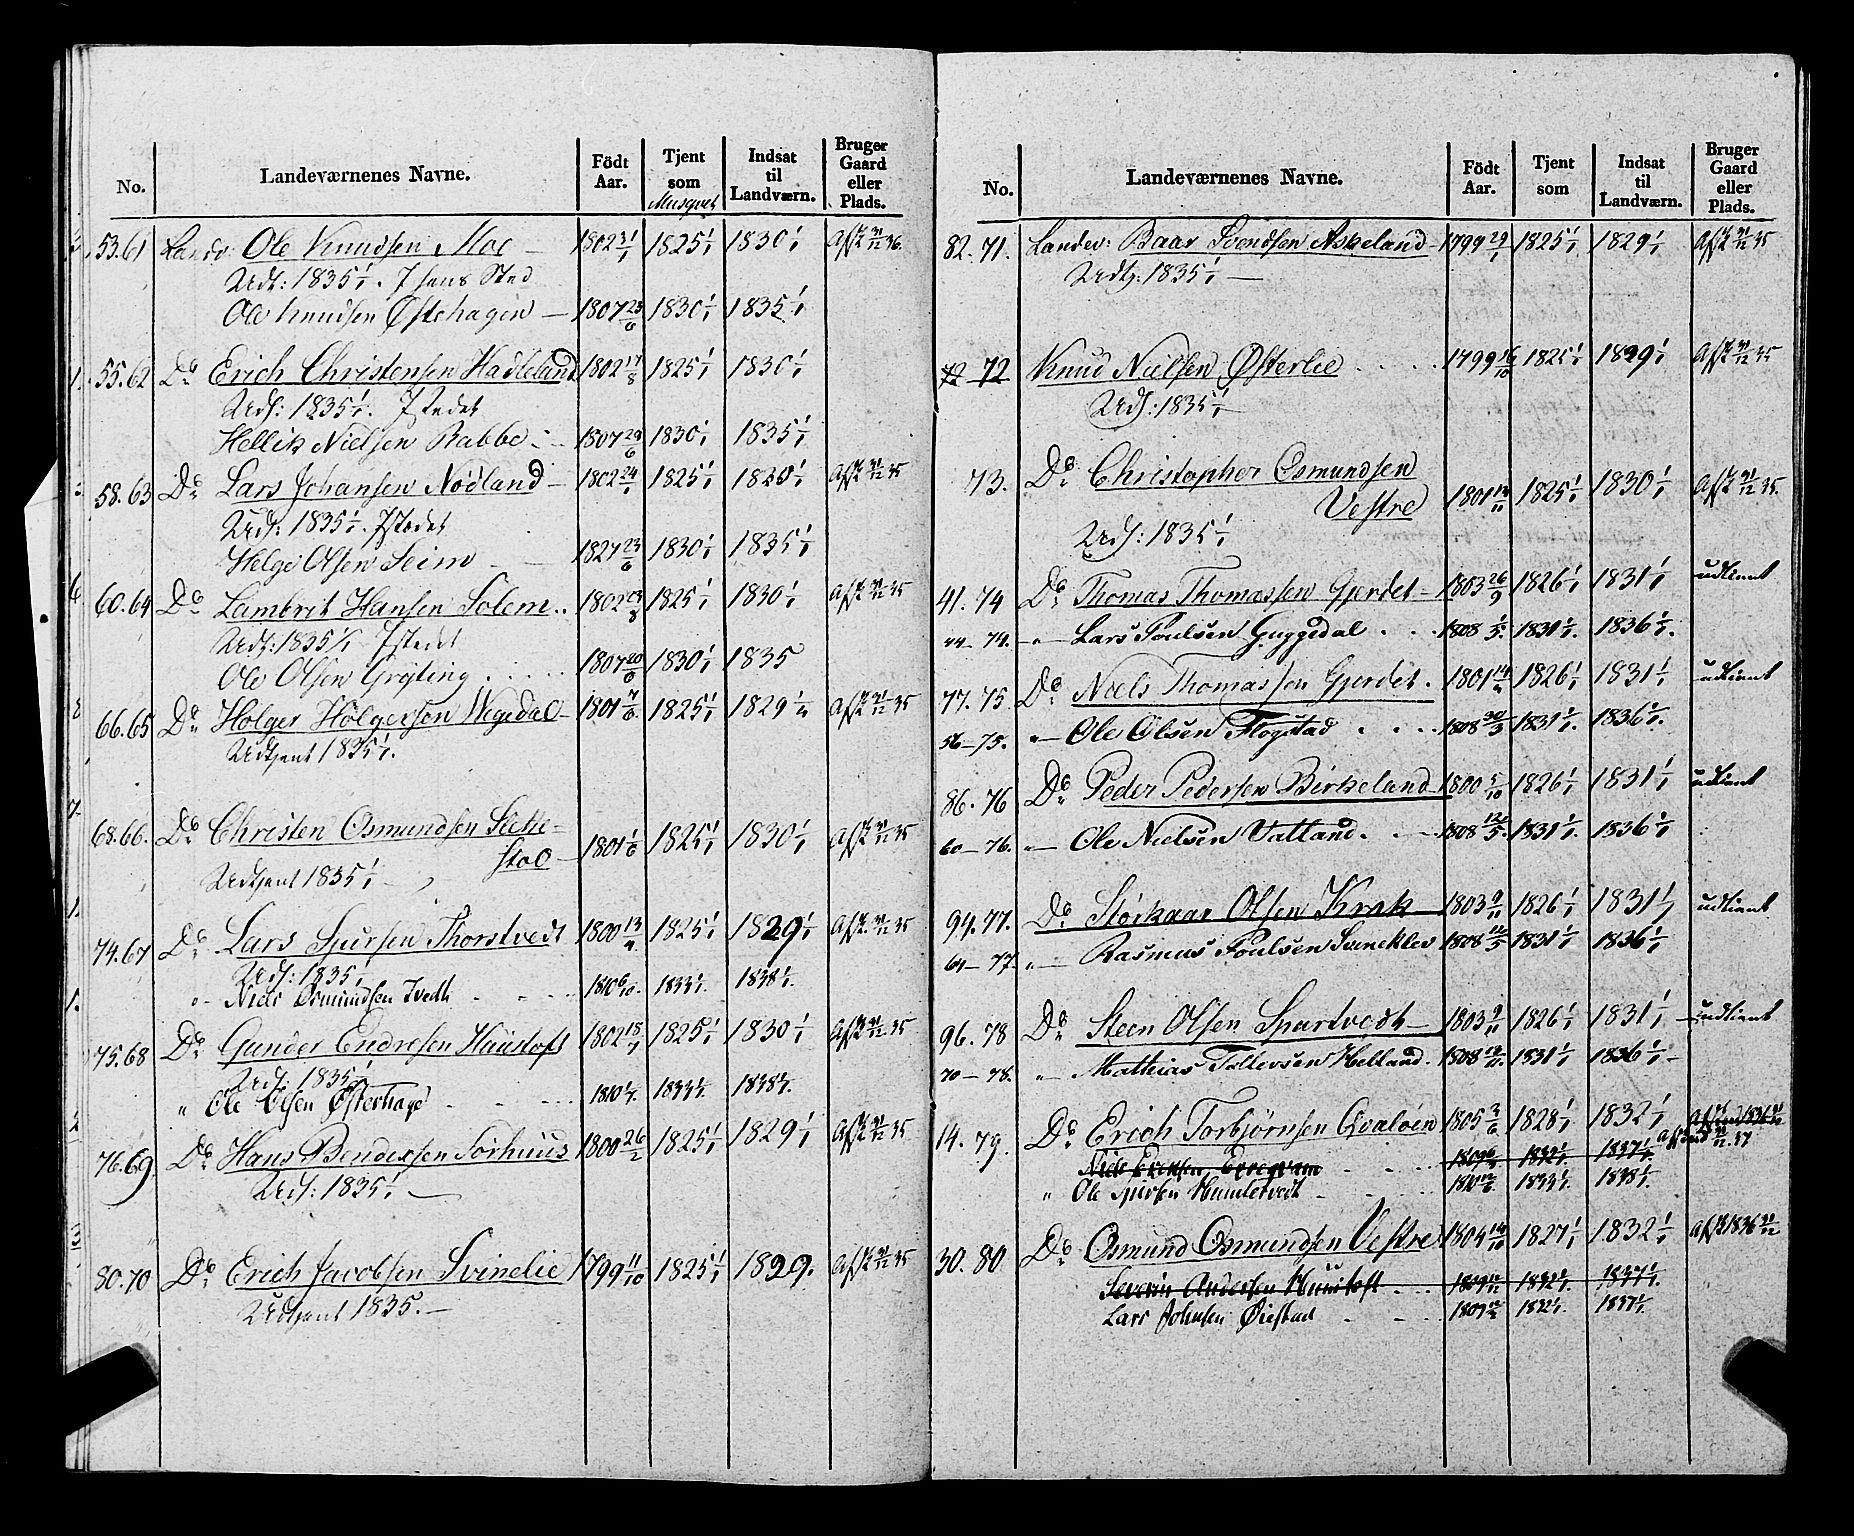 No. Landeværnenes Navne. Födt Aar. Tjent som Musquet Indsat til Landværn. Bruger Gaard eller Plads.
53.61 Landv: Ole Knudsen Moe 1802 31/1 1825 1/1 1830 1/1 Afsk 31/12 36.
Udt: 1835 1/1. I hans Sted
Ole Knudsen Østehagen 1807 23/6 1830 1/1 1835 1/1
55.62 Do Erich Christensen Hadleland 1802 17/8 1825 1/1 1830 1/1
Udt: 1835 1/1. I stedet
Hellik Nielsen Rabbe 1807 29/6 1830 1/1 1835 1/1
58.63 Do Lars Johansen Nödland 1802 24/1 1825 1/1 1830 1/1 Afsk 31/12 35
Udt: 1835 1/1. I stedet
Helge Olsen Seim 1827 23/6 1830 1/1 1835 1/1
60.64 Do Lambrit Hansen Solem 1802 23/8 1825 1/1 1830 1/1 Afsk 31/12 35
Udt: 1835 1/1 I stedet
Ole Olsen Gryting 1807 20/6 1830 1/1 1835
66.65 Do Holger Holgersen Wegedal 1801 7/6 1825 1/1 1829 1/4 Afsk 31/12 35
Udtjent 1835 1/1.
68.66. Do Christen Osmundsen Slette-
stad 1801 1/6 1825 1/1 1830 1/1 Afsk 31/12 35
Udtjent 1835 1/1
74.67 Do Lars Sjursen Thorstvedt 1800 13/4 1825 1/1 1829 1/1 Afsk 31/12 35
Udt: 1835 1/1
" Niels Osmundsen Tvedt 1810 6/10. 1833 1/1. 1838 1/1.
75.68 Do Gunder Endresen Hüüstoft 1802 15/1 1825 1/1 1830 1/1 Afsk 31/12 35
Udt. 1835 1/1
" Ole Olsen Østerhage 1810 1/7. 1833 1/1. 1838 1/1.
76.69 Do Hans Bendixsen Sörhuus 1800 26/2 1825 1/1 1829 1/1 Afsk 31/12 35
Udt: 1835 1/1
80.70 Do Erich Jacobsen Svinelie 1799 11/10 1825 1/1 1829. Afsk 31/12 35
Udtjent 1835.
No. Landeværnenes Navne. Födt Aar. Tjent som Indsat til Landværn. Bruger Gaard eller Plads.
82.71. Landev: Baar Svendsen Askeland 1799 29/1 1825 1/1 1829 1/1 Afsk 31/12 35
Udtj. 1835 1/1
72 72 Knud Nielsen Østerlie 1799 16/10 1825 1/1 1829 1/1 Afsk 31/12 35
Udt: 1835 1/1
73. Do Christopher Osmundsen
Vestre 1801 1825 1/1 1830 1/1 Afsk 31/12 35.
Udt: 1835 1/1
41.74 Do Thomas Thomassen Gjerdet 1803 26/9 1826 1/1 1831 1/1 udtient
44-74. " Lars Poulsen Guggedal 1808 1/5. 1831 1/1. 1836 1/1.
77.75 Do Niels Thomassen Gjerdet. 1801 1826 1/1 1831 1/1 udtient
56-75. " Ole Olsen Flogstad 1808 30/3 1831 1/1 1836 1/1.
86.76 Do Peder Pedersen Birkeland 1800 5/10 1826 1/1 1831 1/1 udtient
60-76. " Ole Nielsen Vatland. 1808 12/5. 1831 1/1. 1836 1/1
94.77. Do Störkaar Olsen Krak 1803 9/11 1826 1/1 1831 1/1 udtient
61-77. " Rasmus Poulsen Svineklev 1808 12/5 1831 1/1 1836 1/1
96.78 Do Steen Olsen Spartvedt 1803 9/11 1826 1/1 1831 1/1 udtient
70-78. " Mathias Tallevsen Helland. 1808 1831 1/1 1836 1/1
14.79. Do Erich Torbjörnsen Qvalöen 1805 3/6 1828 1/1 1832 1/1
Niels Eriksen, 1809 1832 1/1. 1837 1/1. Afskeed 31/12.37
" Ole Sjursen 1810 1833 1/1. 1838 1/1.
30.80 Do Osmund Osmundsen Vestre 1804 14/10 1827 1/1 1832 1/1 Afsk 1836 31/12
Severin Andersen Huustoft 1809 1832 1/1 1837 1/1.
Lars Johnsen Øiestad 1809 1832 1/1. 1837 1/1